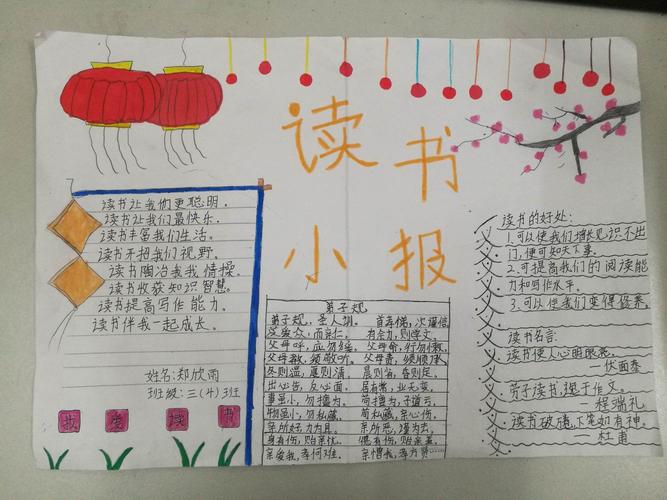 读书
小报
读书让我们更聪明。
读书让我们最快乐。
读书丰富我们生活。
读书开拓我们视野。
读书陶冶我我情操。
读书收获知识智慧。
读书提高写作能力。
读书伴我一起成长。
姓名:郑欣雨
班级:三(4)班
我爱读书
弟子规
弟子规,圣人训。 首孝悌,次谨信。
泛爱众,而亲仁。 有余力,则学文。
父母呼,应勿缓。 父母命,行勿懒。
父母教,须敬听。 父母责,须顺承。
冬则温,夏则凊。 晨则省,昏则定。
出必告,反必面。 居有常,业无变。
事虽小,勿擅为。 苟擅为,子道云。
物虽小,勿私藏。 苟私藏,亲心伤。
亲所好,力为具。 亲所恶,谨为去。
身有伤,贻亲忧。 德有伤,贻亲羞。
亲爱我,孝何难。 亲憎我,孝方贤……
读书的好处:
1.可以使我们增长见识不出
门,便可知天下事。
2.可提高我们的阅读能
力和写作水平。
3.可以使我们变得修养。
读书名言:
读书使人心明眼亮。
——伏尔泰
劳于读书,逸于作文。
——程端礼
读书破万卷,下笔如有神。
——杜甫